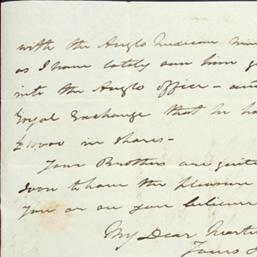 with the Anglo Mexican Mine
as I have lately seen him g
into the Anglo office - and
Royal Exchange that he ha
£10000 in shares -
Your Brothers are quite
soon to have the pleasure
you or on your
My Dear Martin
Yours